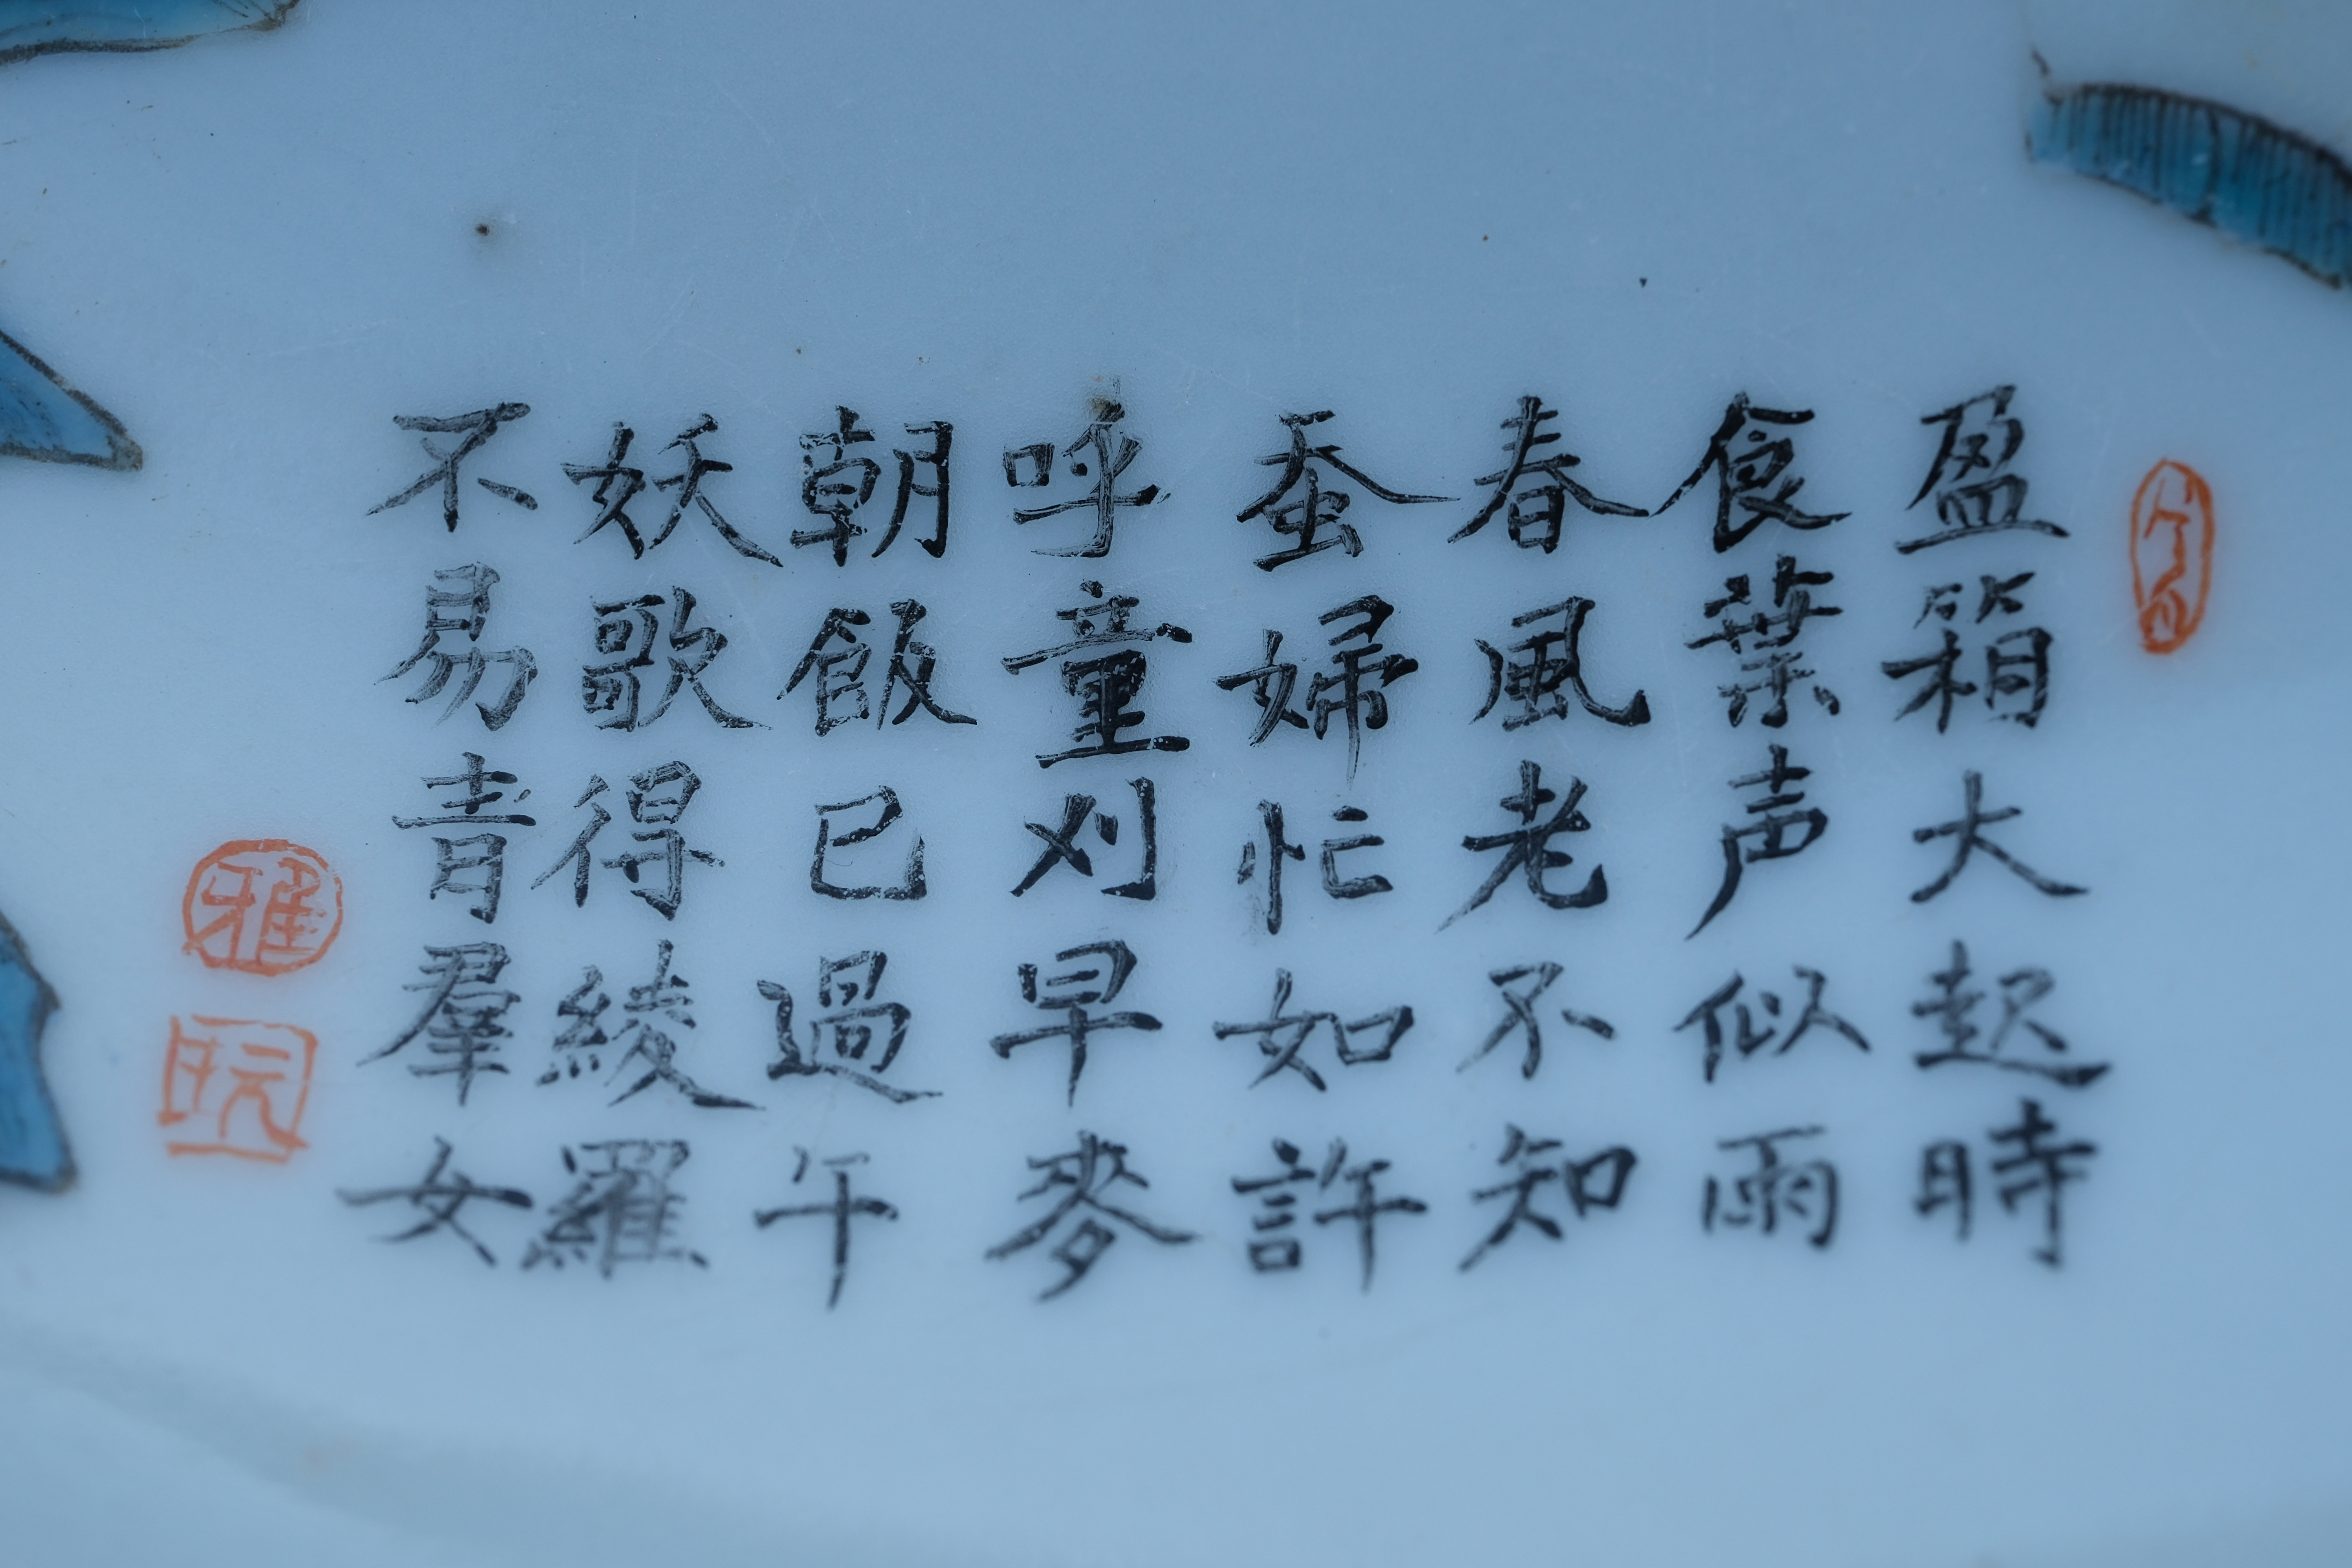 盈箱大起時
食葉声似雨
春風老不知
蚕婦忙如許
呼童刈早麥
朝飯已過午
妖歌得綾羅
不易青羣女
雅
玩